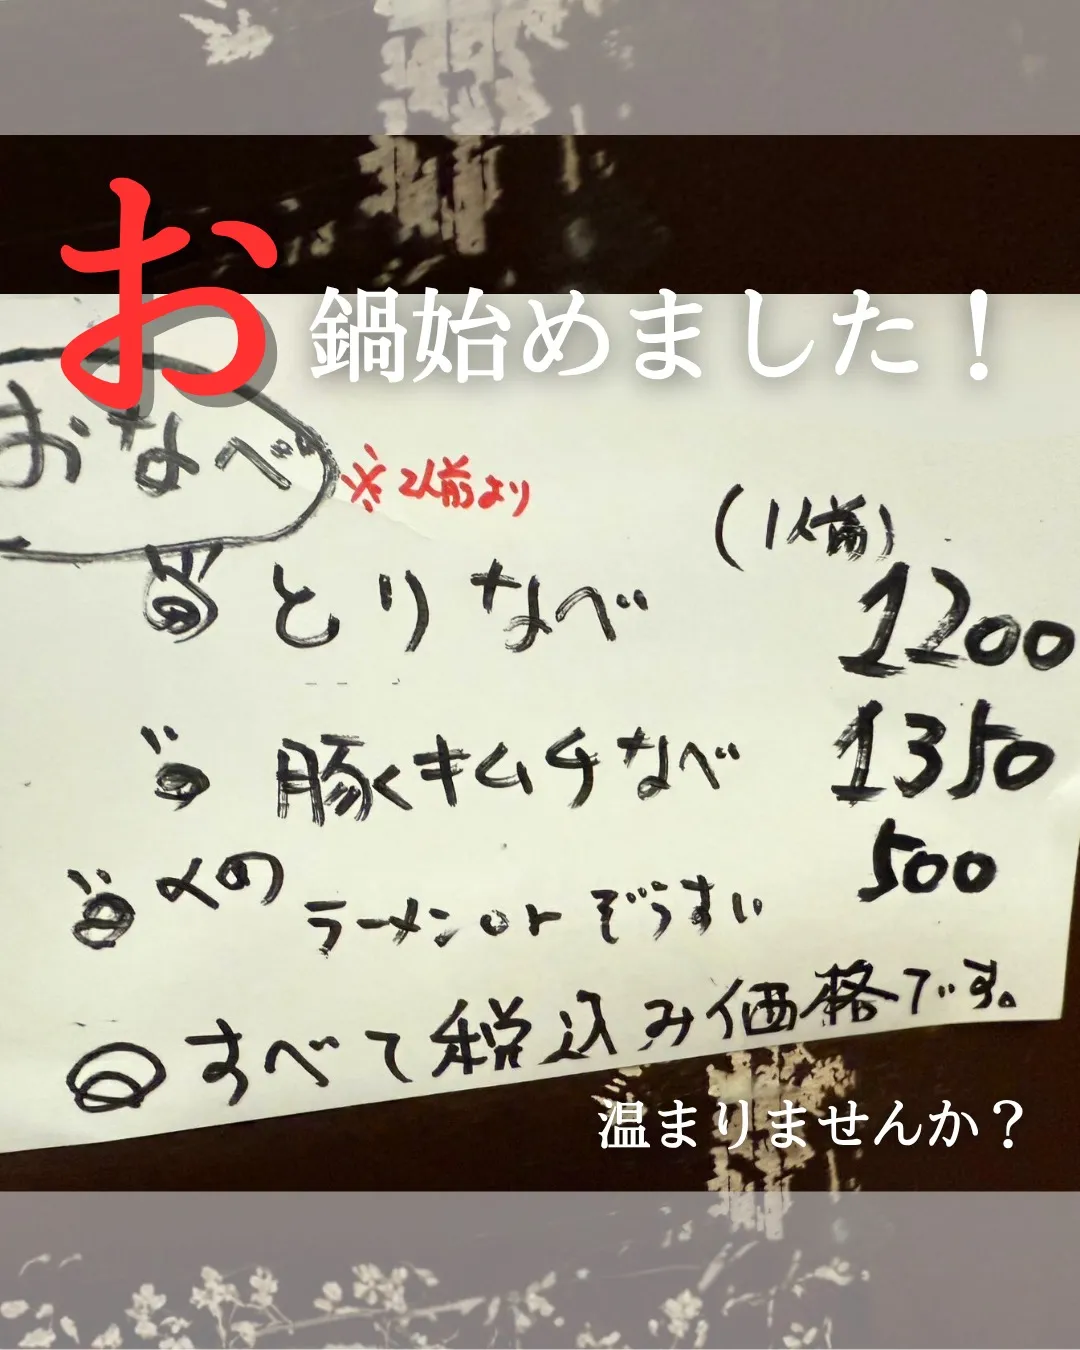 お鍋始めました！
おなべ ※2人前より
(1人前)
とりなべ 1200
豚キムチなべ 1350
〆の ラーメンorぞうすい 500
すべて税込み価格です。
温まりませんか？